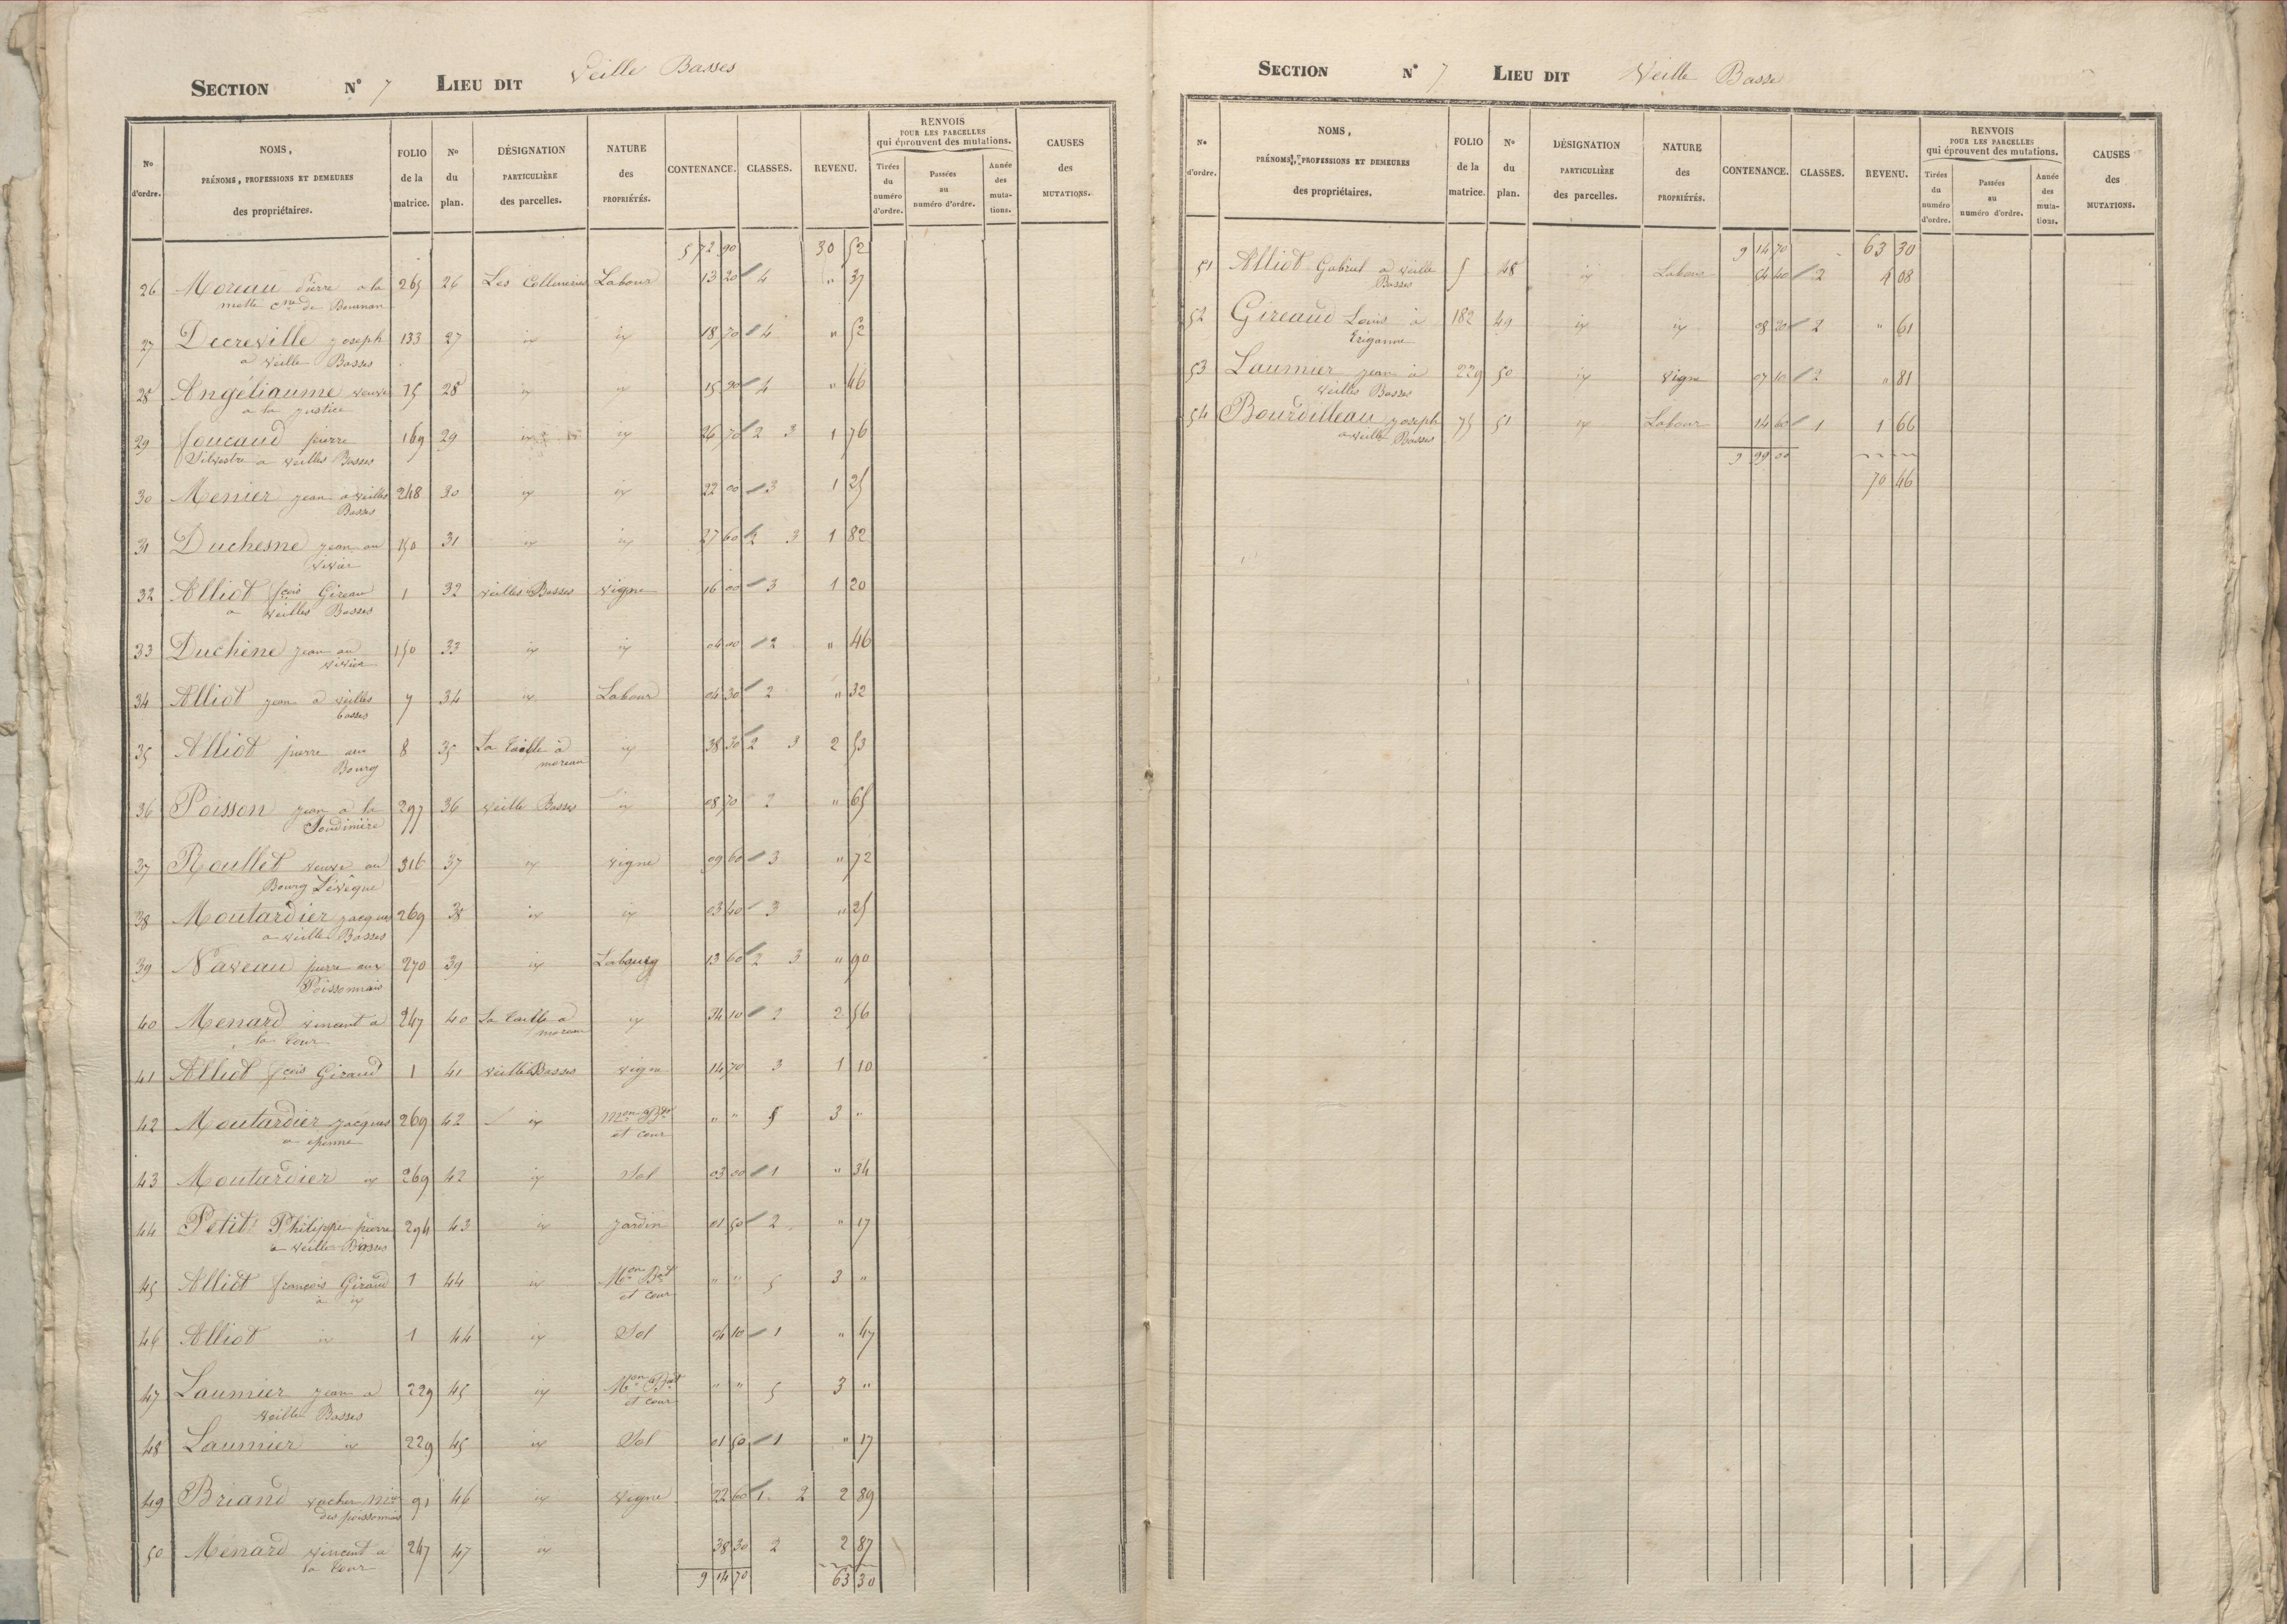 SECTION N° 7 LIEU DIT Veille Basses
N° d'ordre. NOMS, PRÉNOMS, PROFESSIONS ET DEMEURES des propriétaires. FOLIO de la matrice. N° du plan. DÉSIGNATION PARTICULIÈRE des parcelles. NATURE des PROPRIÉTÉS. CONTENANCE. CLASSES. REVENU. RENVOIS POUR LES PARCELLES qui éprouvent des mutations. Tirées du numéro d'ordre. Passées au numéro d'ordre. Année des mutations. CAUSES des MUTATIONS.
5 72 90 30 52
26 Moreau Pierre a la 265 26 Les Labour 13 20 4 " 37
motte Cne de Bournan
27 Decreville joseph 133 27 ix ix 18 70 4 " 52
a veille Basses
28 Angéliaume veuve 15 28 ix ix 15 90 4 " 46
a la justice
29 foucaud pierre 169 29 ix ix 26 70 2 3 1 76
Silvestre a veilles Basses
30 Menier jean a veilles 248 30 ix ix 22 00 3 1 25
Basses
31 Duchesne jean au 150 31 ix ix 27 60 2 3 1 82
vivier
32 Alliot fcois Gireau 1 32 veilles Basses vigne 16 00 3 1 20
a veilles Basses
33 Duchene jean au 150 33 ix ix 04 00 2 " 46
vivier
34 Alliot jean a veilles 7 34 ix Labour 04 30 2 " 32
basses
35 Alliot pierre au 8 35 La taille à ix 38 30 2 3 2 53
Bourg moreau
36 Poisson jean a la 297 36 veille Basses ix 08 70 2 " 65
37 Roullet veuve au 316 37 ix vigne 09 60 3 " 72
Bourg Lévêque
38 Moutardier jacques 269 38 ix ix 03 40 3 " 25
a veille Basses
39 Naveau pierre aux 270 39 ix Labour 13 60 2 3 " 90
Poissonnais
40 Menard vincent a 247 40 La taille a ix 34 10 2 2 56
la Cour moreau
41 Alliot fcois Giraud 1 41 veille Basses vigne 14 70 3 1 10
42 Moutardier jacques 269 42 ix Mon Bat " " 5 3 "
a epinne et cour
43 Moutardier ix 269 42 ix Sol 03 00 1 " 34
44 Petit Philippe pierre 294 43 ix jardin 01 50 2 " 17
a veille Basses
45 Alliot françois Giraud 1 44 ix Mon Bat " " 5 3 "
a ix et cour
46 Alliot ix 1 44 ix Sol 04 10 1 " 47
47 Laumier jean a 229 45 ix Mon Bat " " 5 3 "
Veille Basses et cour
48 Laumier ix 229 45 ix Sol 01 50 1 " 17
49 Briand vacher 91 46 ix vigne 22 60 1 2 2 89
des poissonnais
50 Menard vincent a 247 47 ix 38 30 2 2 87
la Cour
9 14 70 63 30
SECTION N° 7 LIEU DIT Veille Basse
N° d'ordre. NOMS, PRÉNOMS, PROFESSIONS ET DEMEURES des propriétaires. FOLIO de la matrice. N° du plan. DÉSIGNATION PARTICULIÈRE des parcelles. NATURE des PROPRIÉTÉS. CONTENANCE. CLASSES. REVENU. RENVOIS POUR LES PARCELLES qui éprouvent des mutations. Tirées du numéro d'ordre. Passées au numéro d'ordre. Année des mutations. CAUSES des MUTATIONS.
9 14 70 63 30
51 Alliot Gabriel a veille 5 48 ix Labour 54 40 2 4 08
Basses
52 Gireaud Louis à 182 49 ix ix 08 20 2 " 61
53 Laumier jean à 229 50 ix vigne 07 10 2 " 81
veilles Basses
54 Bourdilleau joseph 75 51 ix Labour 14 60 1 1 66
a veille Basses
9 99 00
70 46